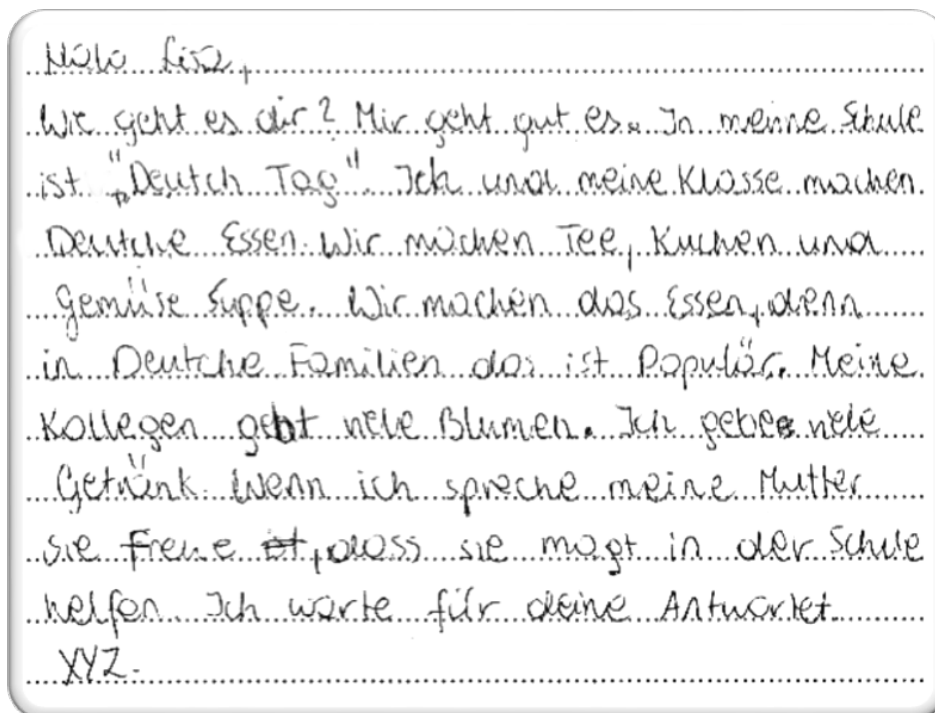 Halo Lisa,
Wie geht es dir? Mir geht gut es. In meinne Schule
ist "Deutch Tag". Ich und meine Klasse machen
Deutche Essen. Wir machen Tee, Kuchen und
Gemüse Suppe. Wir machen das Essen, denn
in Deutche Familien das ist Populär. Meine
Kollegen gebt viele Blumen. Ich gebe viele
Getränk. Wenn ich spreche meine Mutter
sie freue, dass sie magt in der Schule
helfen. Ich warte für deine Antwortet.
XYZ.